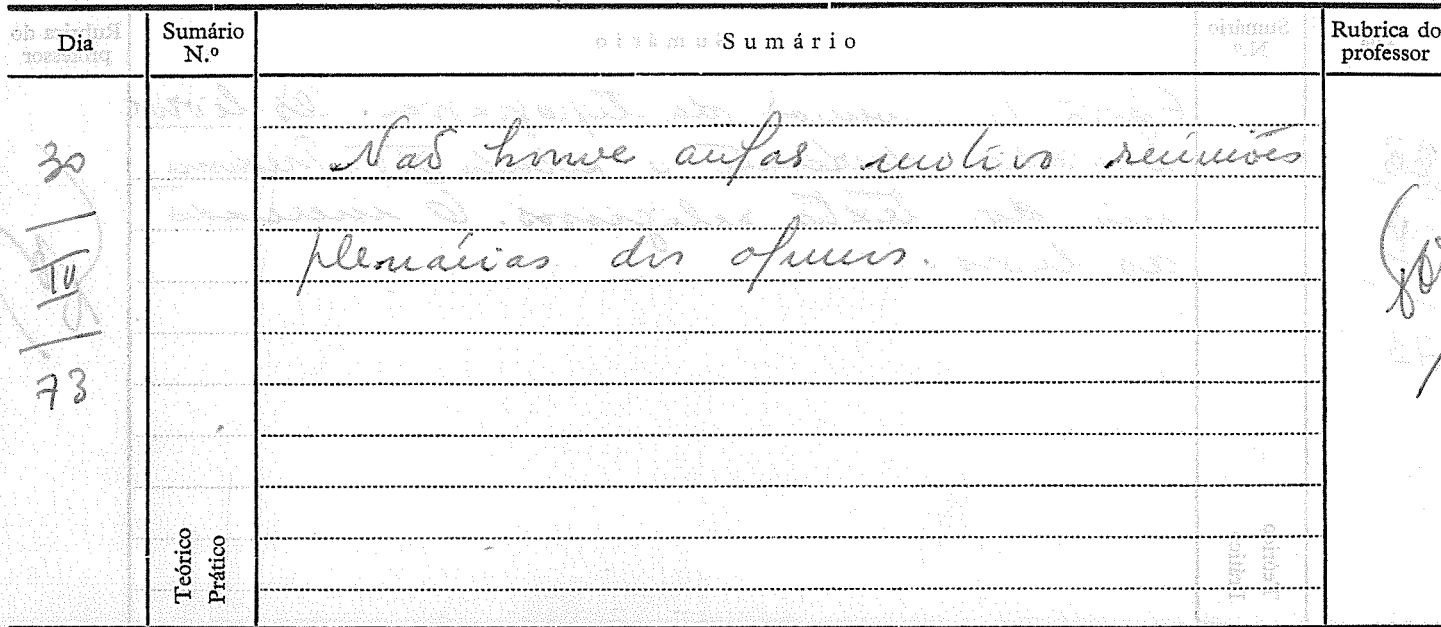 Dia
Sumário N.º
Sumário
Rubrica do professor
30
IV
73
Não houve aulas motivo reuniões
plenárias dos alunos.
Teórico
Prático